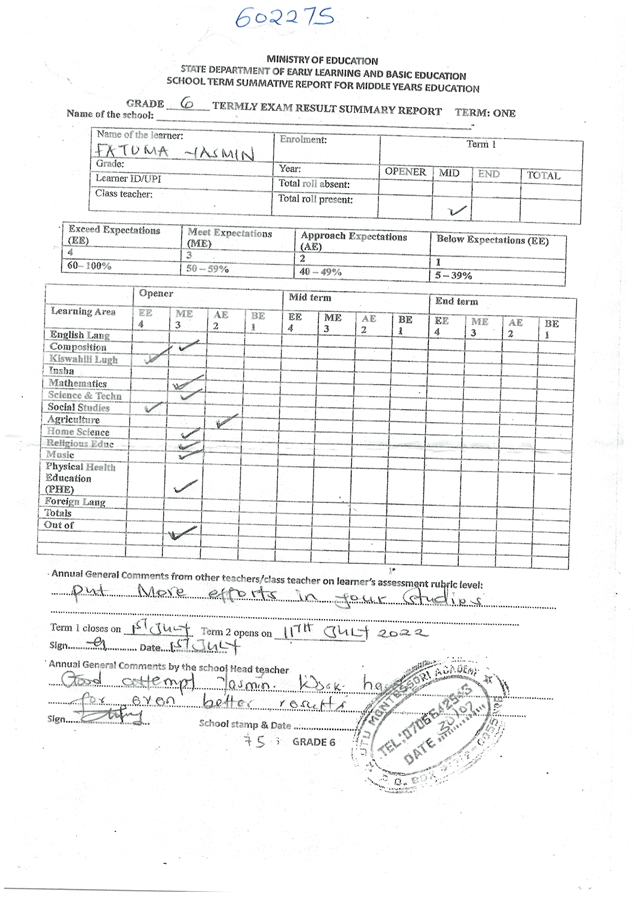 602275
MINISTRY OF EDUCATION
STATE DEPARTMENT OF EARLY LEARNING AND BASIC EDUCATION
SCHOOL TERM SUMMATIVE REPORT FOR MIDDLE YEARS EDUCATION
GRADE 6 TERMLY EXAM RESULT SUMMARY REPORT TERM: ONE
Name of the school:
Name of the learner: Enrolment: Term 1
FATUMA YASMIN
Grade: Year: OPENER MID END TOTAL
Learner ID/UPI Total roll absent:
Class teacher: Total roll present: ✓
Exceed Expectations (EE) Meet Expectations (ME) Approach Expectations (AE) Below Expectations (EE)
4 3 2 1
60–100% 50–59% 40–49% 5–39%
Opener Mid term End term
Learning Area EE 4 ME 3 AE 2 BE 1 EE 4 ME 3 AE 2 BE 1 EE 4 ME 3 AE 2 BE 1
English Lang
Composition ✓
Kiswahili Lugh ✓
Insha
Mathematics ✓
Science & Techn ✓
Social Studies ✓
Agriculture ✓
Home Science ✓
Religious Educ ✓
Music ✓
Physical Health Education (PHE) ✓
Foreign Lang
Totals
Out of ✓
Annual General Comments from other teachers/class teacher on learner's assessment rubric level:
Put More efforts in your studies
Term 1 closes on 1ST JULY Term 2 opens on 11TH JULY 2022
Sign. Date 1ST JULY
Annual General Comments by the school Head teacher
Good attempt Yasmin. Work
for even better results
Sign School stamp & Date
75 GRADE 6
UTU MONTESSORI ACADEMY
TEL:0706642543
DATE
P. O. BOX